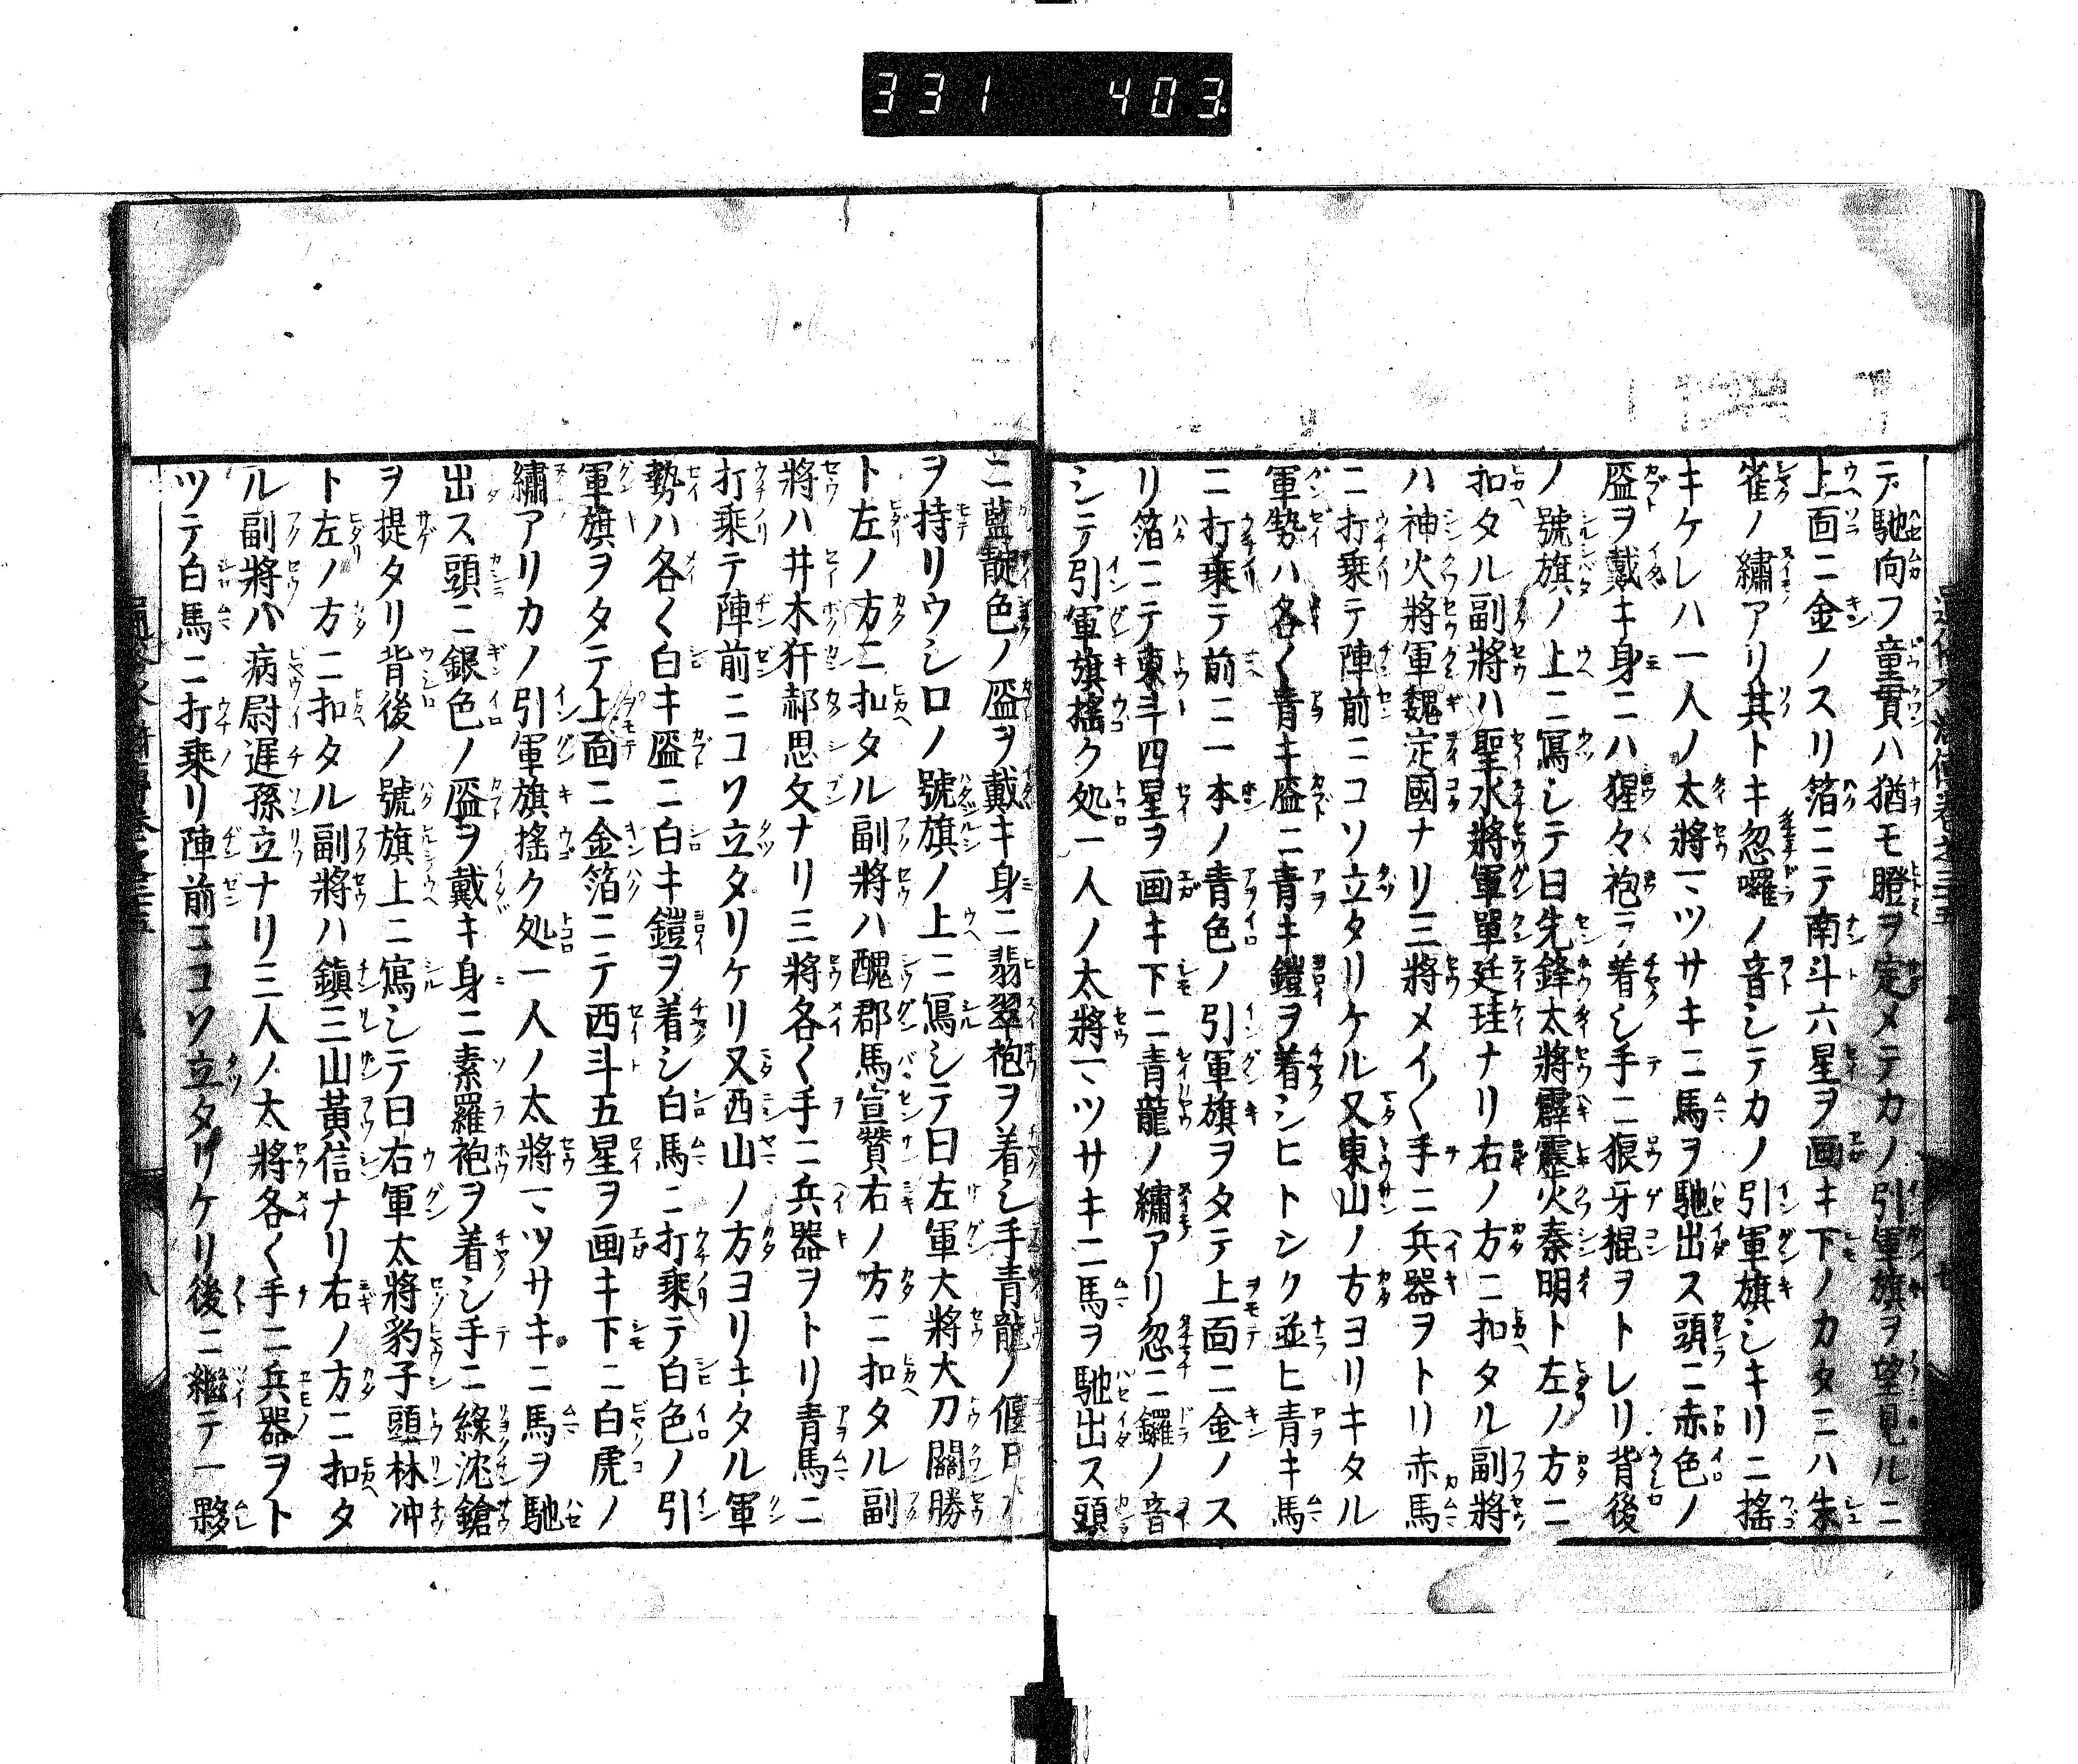 331 403
テ馳向フ童貫ハ猶モ瞪ヲ定メテカノ引軍旗ヲ望見ルニ
上面ニ金ノスリ箔ニテ南斗六星ヲ画キ下ノカタニハ朱
雀ノ繡アリ其トキ忽囉ノ音シテカノ引軍旗シキリニ搖
キケレハ一人ノ太將一ツサキニ馬ヲ馳出ス頭ニ赤色ノ
盔ヲ戴キ身ニハ猩々袍ヲ着シ手ニ狼牙棍ヲトレリ背後
ノ號旗ノ上ニ寫シテ曰先鋒太將霹靂火秦明ト左ノ方ニ
扣タル副將ハ聖水將軍單廷珪ナリ右ノ方ニ扣タル副將
ハ神火將軍魏定國ナリ三將メイ〱手ニ兵器ヲトリ赤馬
ニ打乘テ陣前ニコソ立タリケル又東山ノ方ヨリキタル
軍勢ハ各〱青キ盔ニ青キ鎧ヲ着シヒトシク並ヒ青キ馬
ニ打乘テ前ニ一本ノ青色ノ引軍旗ヲタテ上面ニ金ノス
リ箔ニテ東斗四星ヲ画キ下ニ青龍ノ繡アリ忽ニ鑼ノ音
シテ引軍旗搖ク処一人ノ太將一ツサキニ馬ヲ馳出ス頭
ニ藍靛色ノ盔ヲ戴キ身ニ翡翠袍ヲ着シ手青龍ノ偃月刀
ヲ持リウシロノ號旗ノ上ニ寫シテ曰左軍大將大刀關勝
ト左ノ方ニ扣タル副將ハ醜郡馬宣贊右ノ方ニ扣タル副
將ハ井木犴郝思文ナリ三將各〱手ニ兵器ヲトリ青馬ニ
打乘テ陣前ニコソ立タリケリ又西山ノ方ヨリキタル軍
勢ハ各〱白キ盔ニ白キ鎧ヲ着シ白馬ニ打乘テ白色ノ引
軍旗ヲタテ上面ニ金箔ニテ西斗五星ヲ画キ下ニ白虎ノ
繡アリカノ引軍旗搖ク処一人ノ太將一ツサキニ馬ヲ馳
出ス頭ニ銀色ノ盔ヲ戴キ身ニ素羅袍ヲ着シ手ニ綠沈鎗
ヲ提タリ背後ノ號旗上ニ寫シテ曰右軍太將豹子頭林冲
ト左ノ方ニ扣タル副將ハ鎮三山黃信ナリ右ノ方ニ扣タ
ル副將ハ病尉遲孫立ナリ三人ノ太將各〱手ニ兵器ヲト
ツテ白馬ニ打乘リ陣前ニコソ立タリケリ後ニ繼テ一夥